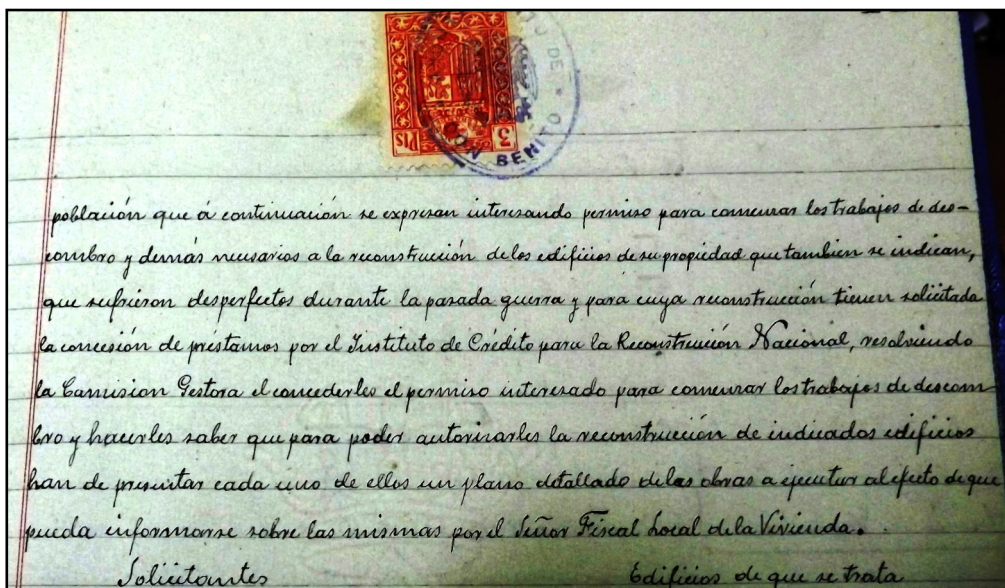 DE
DON BENITO
3
Pts
población que á continuación se expresan interesando permiso para comenzar los trabajos de des-
combro y demás necesarios a la reconstrucción de los edificios de su propiedad que tambien se indican,
que sufrieron desperfectos durante la pasada guerra y para cuya reconstrucción tienen solicitada
la concesión de préstamos por el Instituto de Crédito para la Reconstrucción Nacional, resolviendo
la Comision Gestora el concederles el permiso interesado para comenzar los trabajos de descom-
bro y hacerles saber que para poder autorizarles la reconstrucción de indicados edificios
han de presentar cada uno de ellos un plano detallado de las obras a ejecutar al efecto de que
pueda informarse sobre las mismas por el Señor Fiscal Local de la Vivienda.
Solicitantes Edificios de que se trata